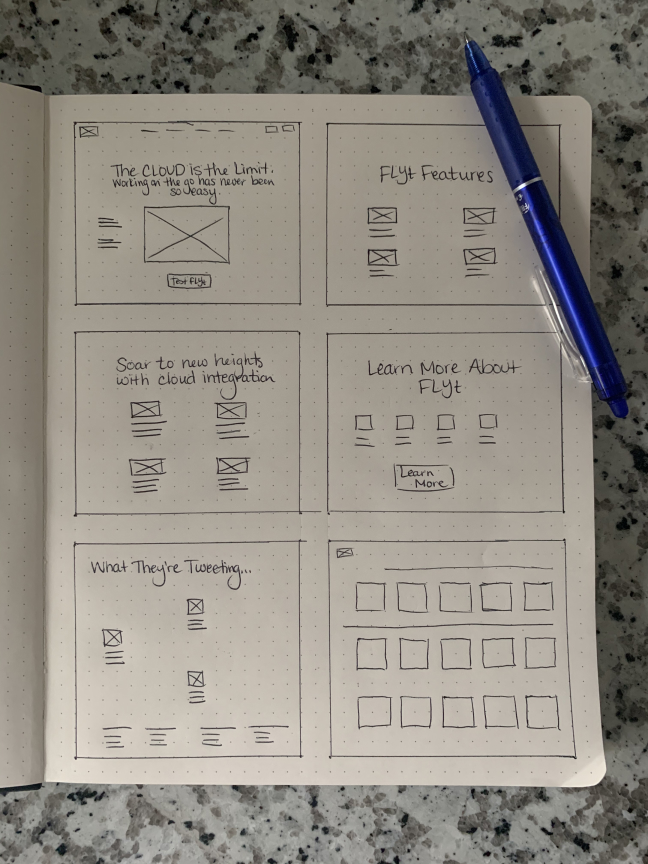 The CLOUD is the Limit.
Working on the go has never been
so easy.
Test FLyt
FLyt Features
Soar to new heights
with cloud integration
Learn More About
FLyt
Learn
More
What They're Tweeting...